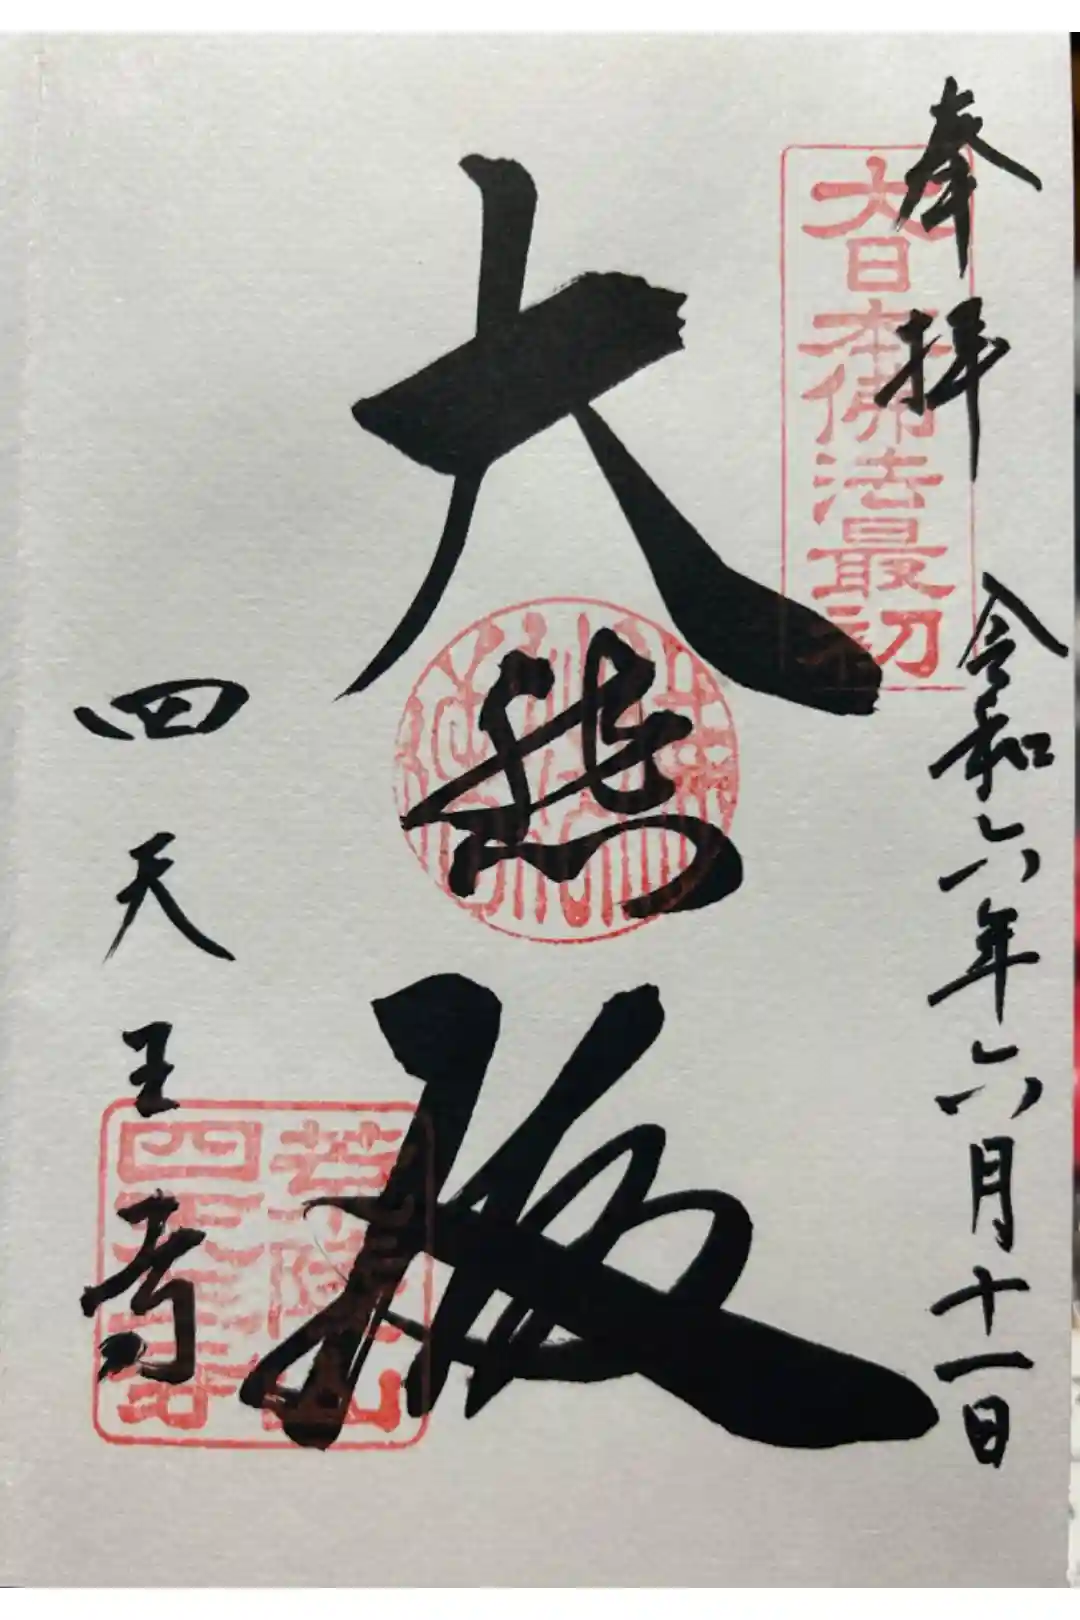 奉拝
令和六年六月十一日
大日本佛法最初
大悲殿
四天王寺
荒陵山
四天王寺